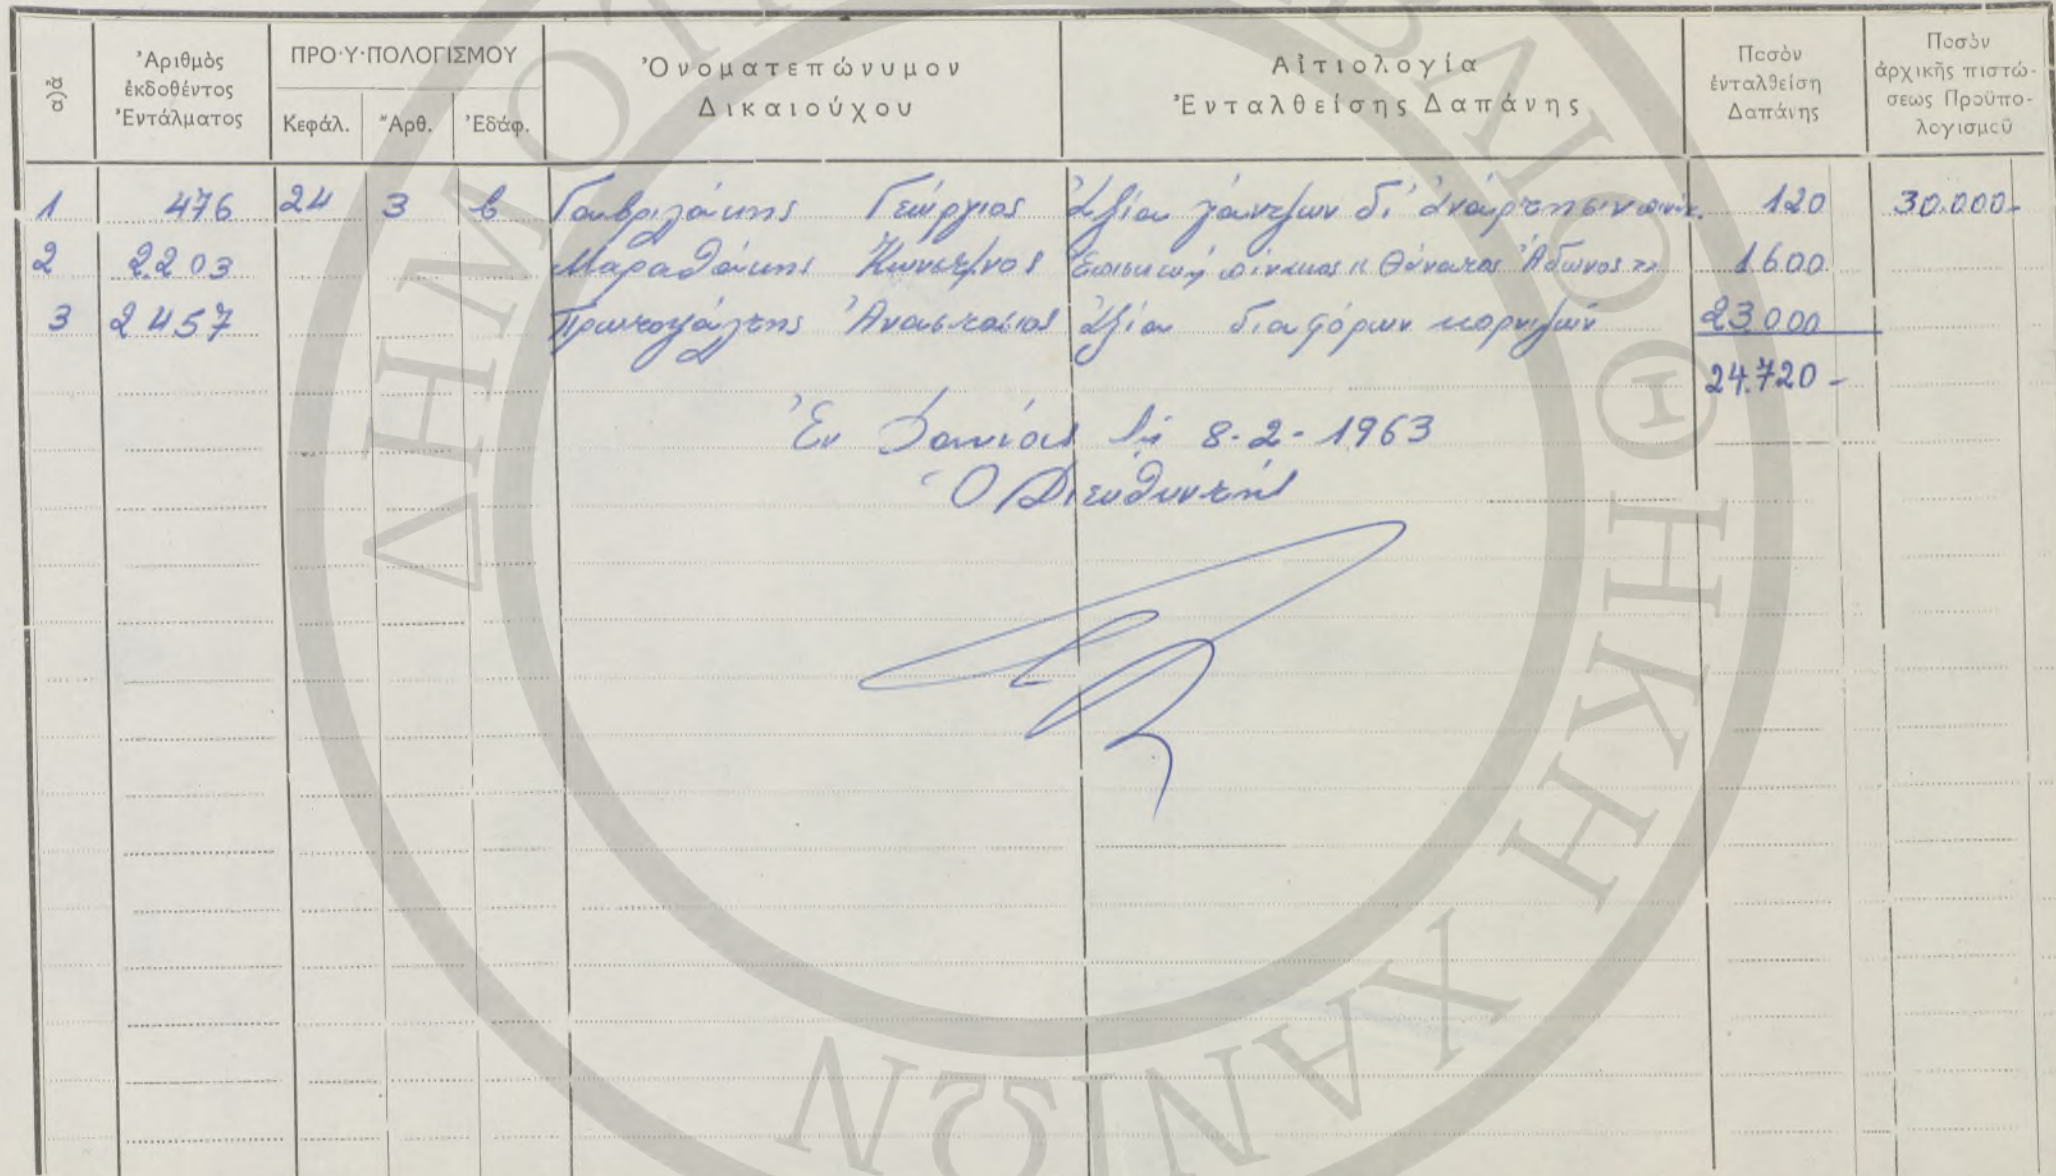 α)α
Ἀριθμὸς ἐκδοθέντος Ἐντάλματος
ΠΡΟ·Υ·ΠΟΛΟΓΙΣΜΟΥ
Κεφάλ. Ἄρθ. Ἐδάφ.
Ὀνοματεπώνυμον Δικαιούχου
Αἰτιολογία Ἐνταλθείσης Δαπάνης
Ποσὸν ἐνταλθείση Δαπάνης
Ποσὸν ἀρχικῆς πιστώ-
σεως Προϋπο-
λογισμοῦ
1 476 24 3 β Γαυβριλάκης Γεώργιος Ἀξία γάντζων δι' ἀνάρτησιν πινάκ. 120 30.000-
2 2203 Μαραθάκης Κωνστ/νος Ἐπισκευή πίνακος « Θάνατος Ἀδώνος » 1600
3 2457 Πρωτοψάλτης Ἀναστάσιος Ἀξία διαφόρων κορνιζών 23000
24.720 -
Ἐν Χανίοις τῇ 8-2-1963
Ὁ Διευθυντής
ΔΗΜΟΤ ΒΛΙΟΘΗΚΗ ΧΑΝΙΩΝ